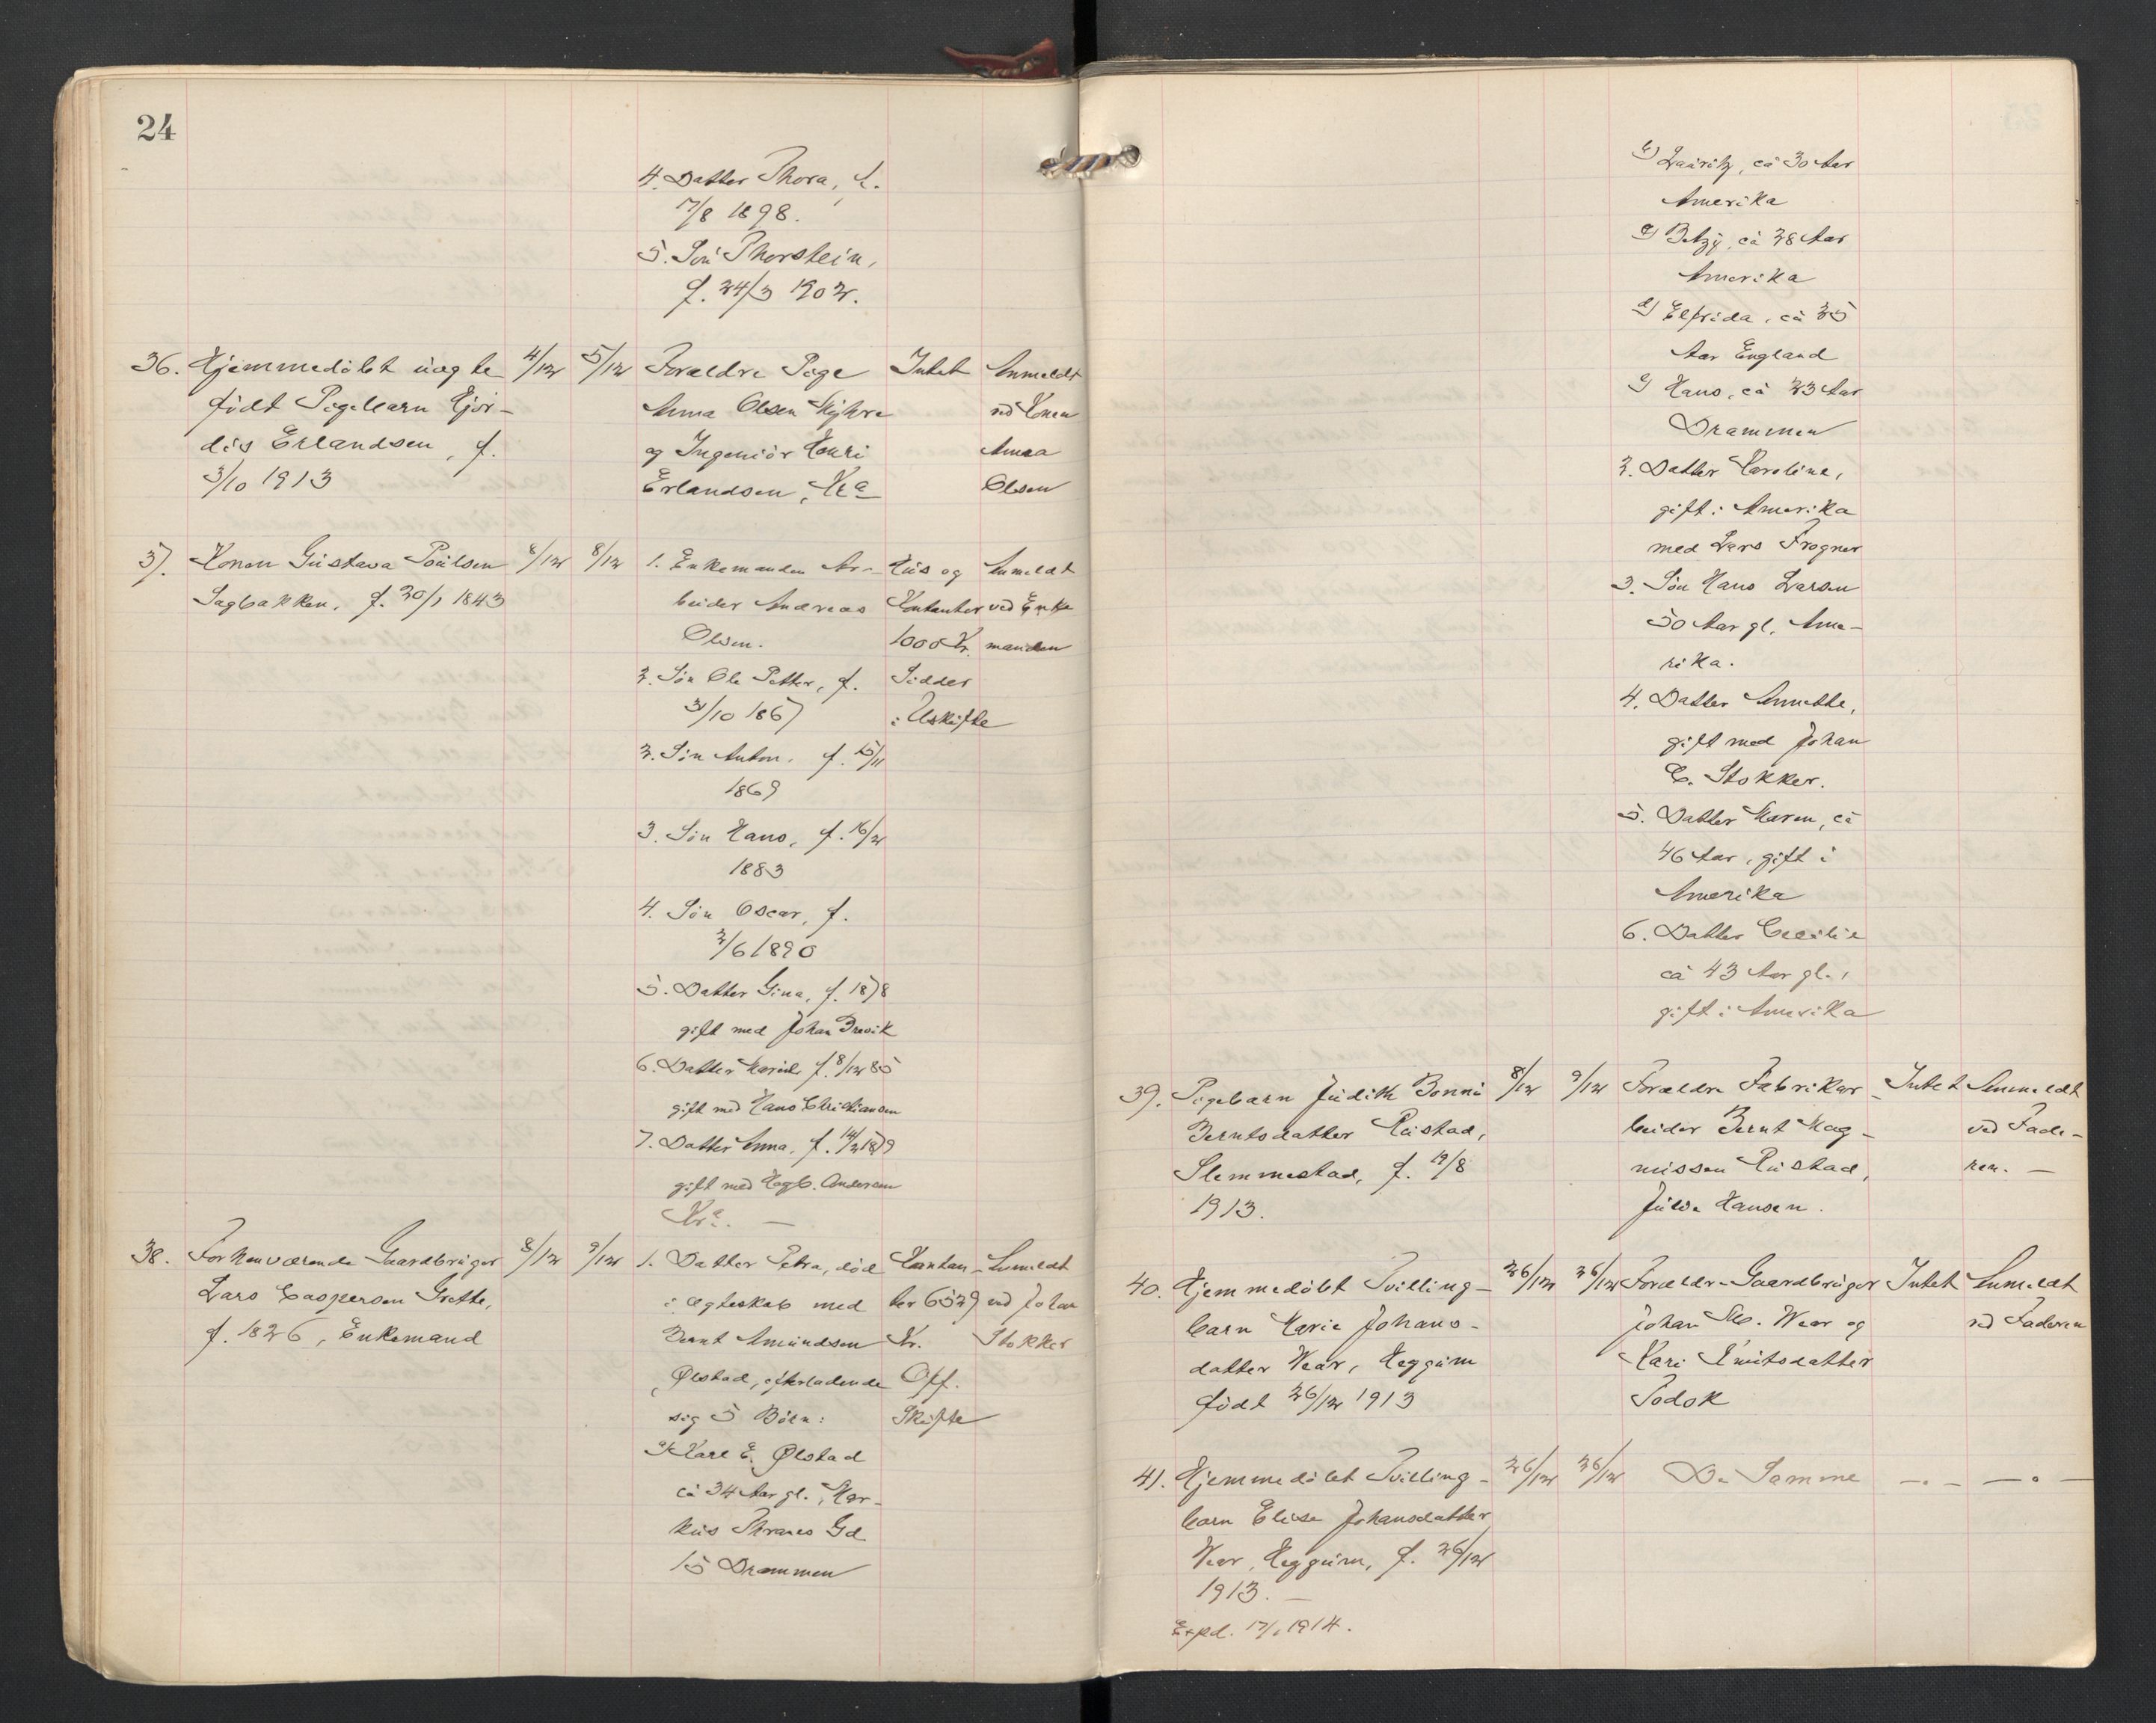 24
4. Datter Thora, f.
17/8 1898.
5. Søn Thorstein,
f. 24/3 1902.
36. Hjemmedøbt uægte
født Pigebarn Hjør-
dis Erlandsen, f.
3/10 1913
4/12
5/12
Forældre Pige
Anna Olsen
og Ingeniør Henri
Erlandsen, Kra
Intet
Anmeldt
ved Konen
Anna
Olsen
37. Konen Gustava Poulsen
Sagbakken, f. 1843
8/12
8/12
1. Enkemanden Ar-
beider Andreas
Olsen.
2. Søn Ole Petter, f.
31/10 1867
2. Søn Anton, f. 15/11
1869
3. Søn Hans, f. 16/2
1883
4. Søn Oscar, f.
2/6 1890
5. Datter Gina, f. 1878
gift med Johan Brevik
6. Datter f. 8/12 85
gift med Hans Christiansen
7. Datter Anna, f. 14/2 1879
gift med Hagb. Andersen
Kra. —
Hus og
Kontanter
1000 Kr.
Sidder
i Uskifte
Anmeldt
ved Enke
manden
38. Forhenværende Gaardbruger
Lars Caspersen Grette,
f. 1826, Enkemand
8/12
9/12
1. Datter Petra, død
i Ægteskab med
Bernt Amundsen
Ølstad, efterladende
sig 5 Børn:
a) Karl E. Ølstad
ca 34 Aar gl., Mar-
kus Thranes Gd
15 Drammen
Kontan-
ter 6529
Kr.
Off.
Skifte
Anmeldt
ved Johan
Stokker
b) Lauritz, ca 30 Aar
Amerika
c) Betzy, ca 28 Aar
Amerika
d) Elfrida, ca 25
Aar England
e) Hans, ca 23 Aar
Drammen
2. Datter Karoline,
gift i Amerika
med Lars Frogner
3. Søn Hans Larsen
50 Aar gl. Ame-
rika.
4. Datter Annette,
gift med Johan
C. Stokker.
5. Datter Maren, ca
46 Aar, gift i
Amerika
6. Datter Cecilie
ca 43 Aar gl.,
gift i Amerika
39. Pigebarn Judith Bonni
Berntsdatter Rustad,
Slemmestad, f. 19/8
1913.
8/12
9/12
Forældre Fabrikar-
beider Bernt Mag-
nussen Rustad,
Julie Hansen.
Intet
Anmeldt
ved Fade-
ren. —
40. Hjemmedøbt Tvilling-
barn Marie Johans-
datter Wear, Heggum
født 26/12 1913
26/12
26/12
Forældre Gaardbruger
Johan Wear og
Kari Knutsdatter
Todok
Intet
Anmeldt
ved Faderen
41. Hjemmedøbt Tvilling-
barn Elise Johansdatter
Wear, Heggum, f. 26/12
1913. —
26/12
26/12
De Samme
—.—
—.—
Expd. 17/1 1914.